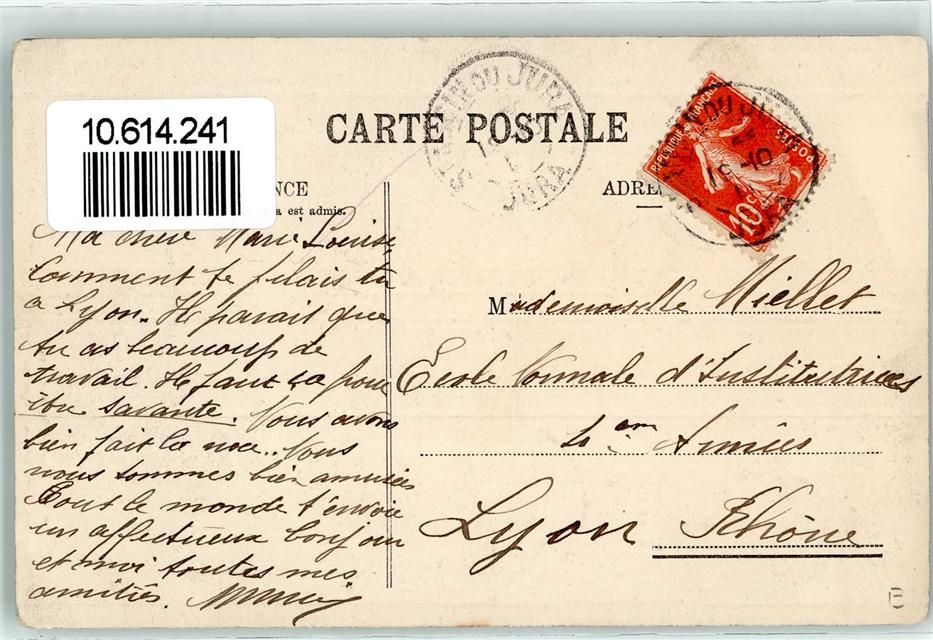 10.614.241
CARTE POSTALE
NCE
a est admis.
ADRE
JURA
REPUBLIQUE FRANÇAISE
POSTES
10c
Ma chère Marie Louise,
Comment te plais tu
a Lyon. Il parait que
tu as beaucoup de
travail. Il faut ça pour
être savante. Nous avons
bien fait la noce. Nous
nous sommes bien amusées
Tout le monde t'envoie
un affectueux bonjour
et moi toutes mes
amitiés.
Mademoiselle Miellet
Ecole Normale d'Institutrices
Années
Lyon Rhône